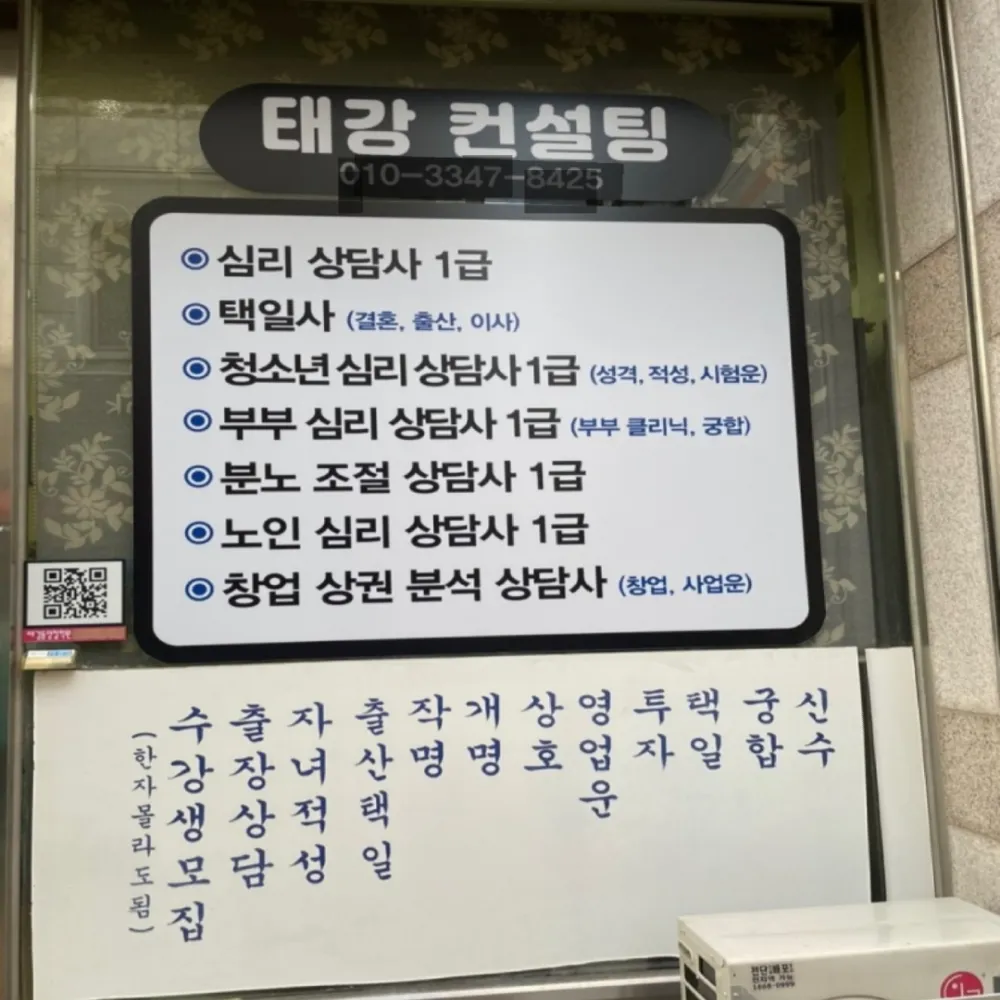 태강 컨설팅
010-3347-8425
심리 상담사 1급
택일사 (결혼, 출산, 이사)
청소년 심리 상담사 1급 (성격, 적성, 시험운)
부부 심리 상담사 1급 (부부 클리닉, 궁합)
분노 조절 상담사 1급
노인 심리 상담사 1급
창업 상권 분석 상담사 (창업, 사업운)
신수
궁합
택일
투자
영업운
상호
개명
작명
출산택일
자녀적성
출장상담
수강생모집
(한자몰라도됨)